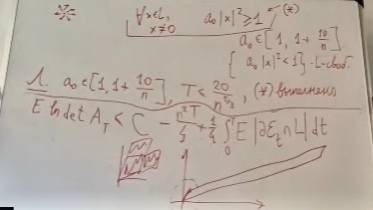 ∀x∈L, x≠0 a₀|x|² ≥ 1 (*)
a₀ ∈ [1, 1+ 10/n]
{ a₀|x|² < 1 } - L-своб.
Л. a₀ ∈ [1, 1+ 10/n], T < 20/n², (*) выполнено
E ln det A_T < C - n²T/ + 1/4 ∫₀ᵀ E |∂E_t ∩ L| dt